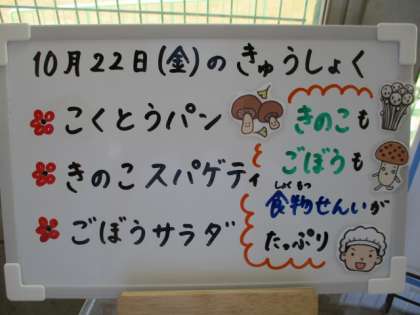 10月22日(金)のきゅうしょく
こくとうパン
きのこスパゲティ
ごぼうサラダ
きのこも
ごぼうも
しょくもつ
食物せんいが
たっぷり